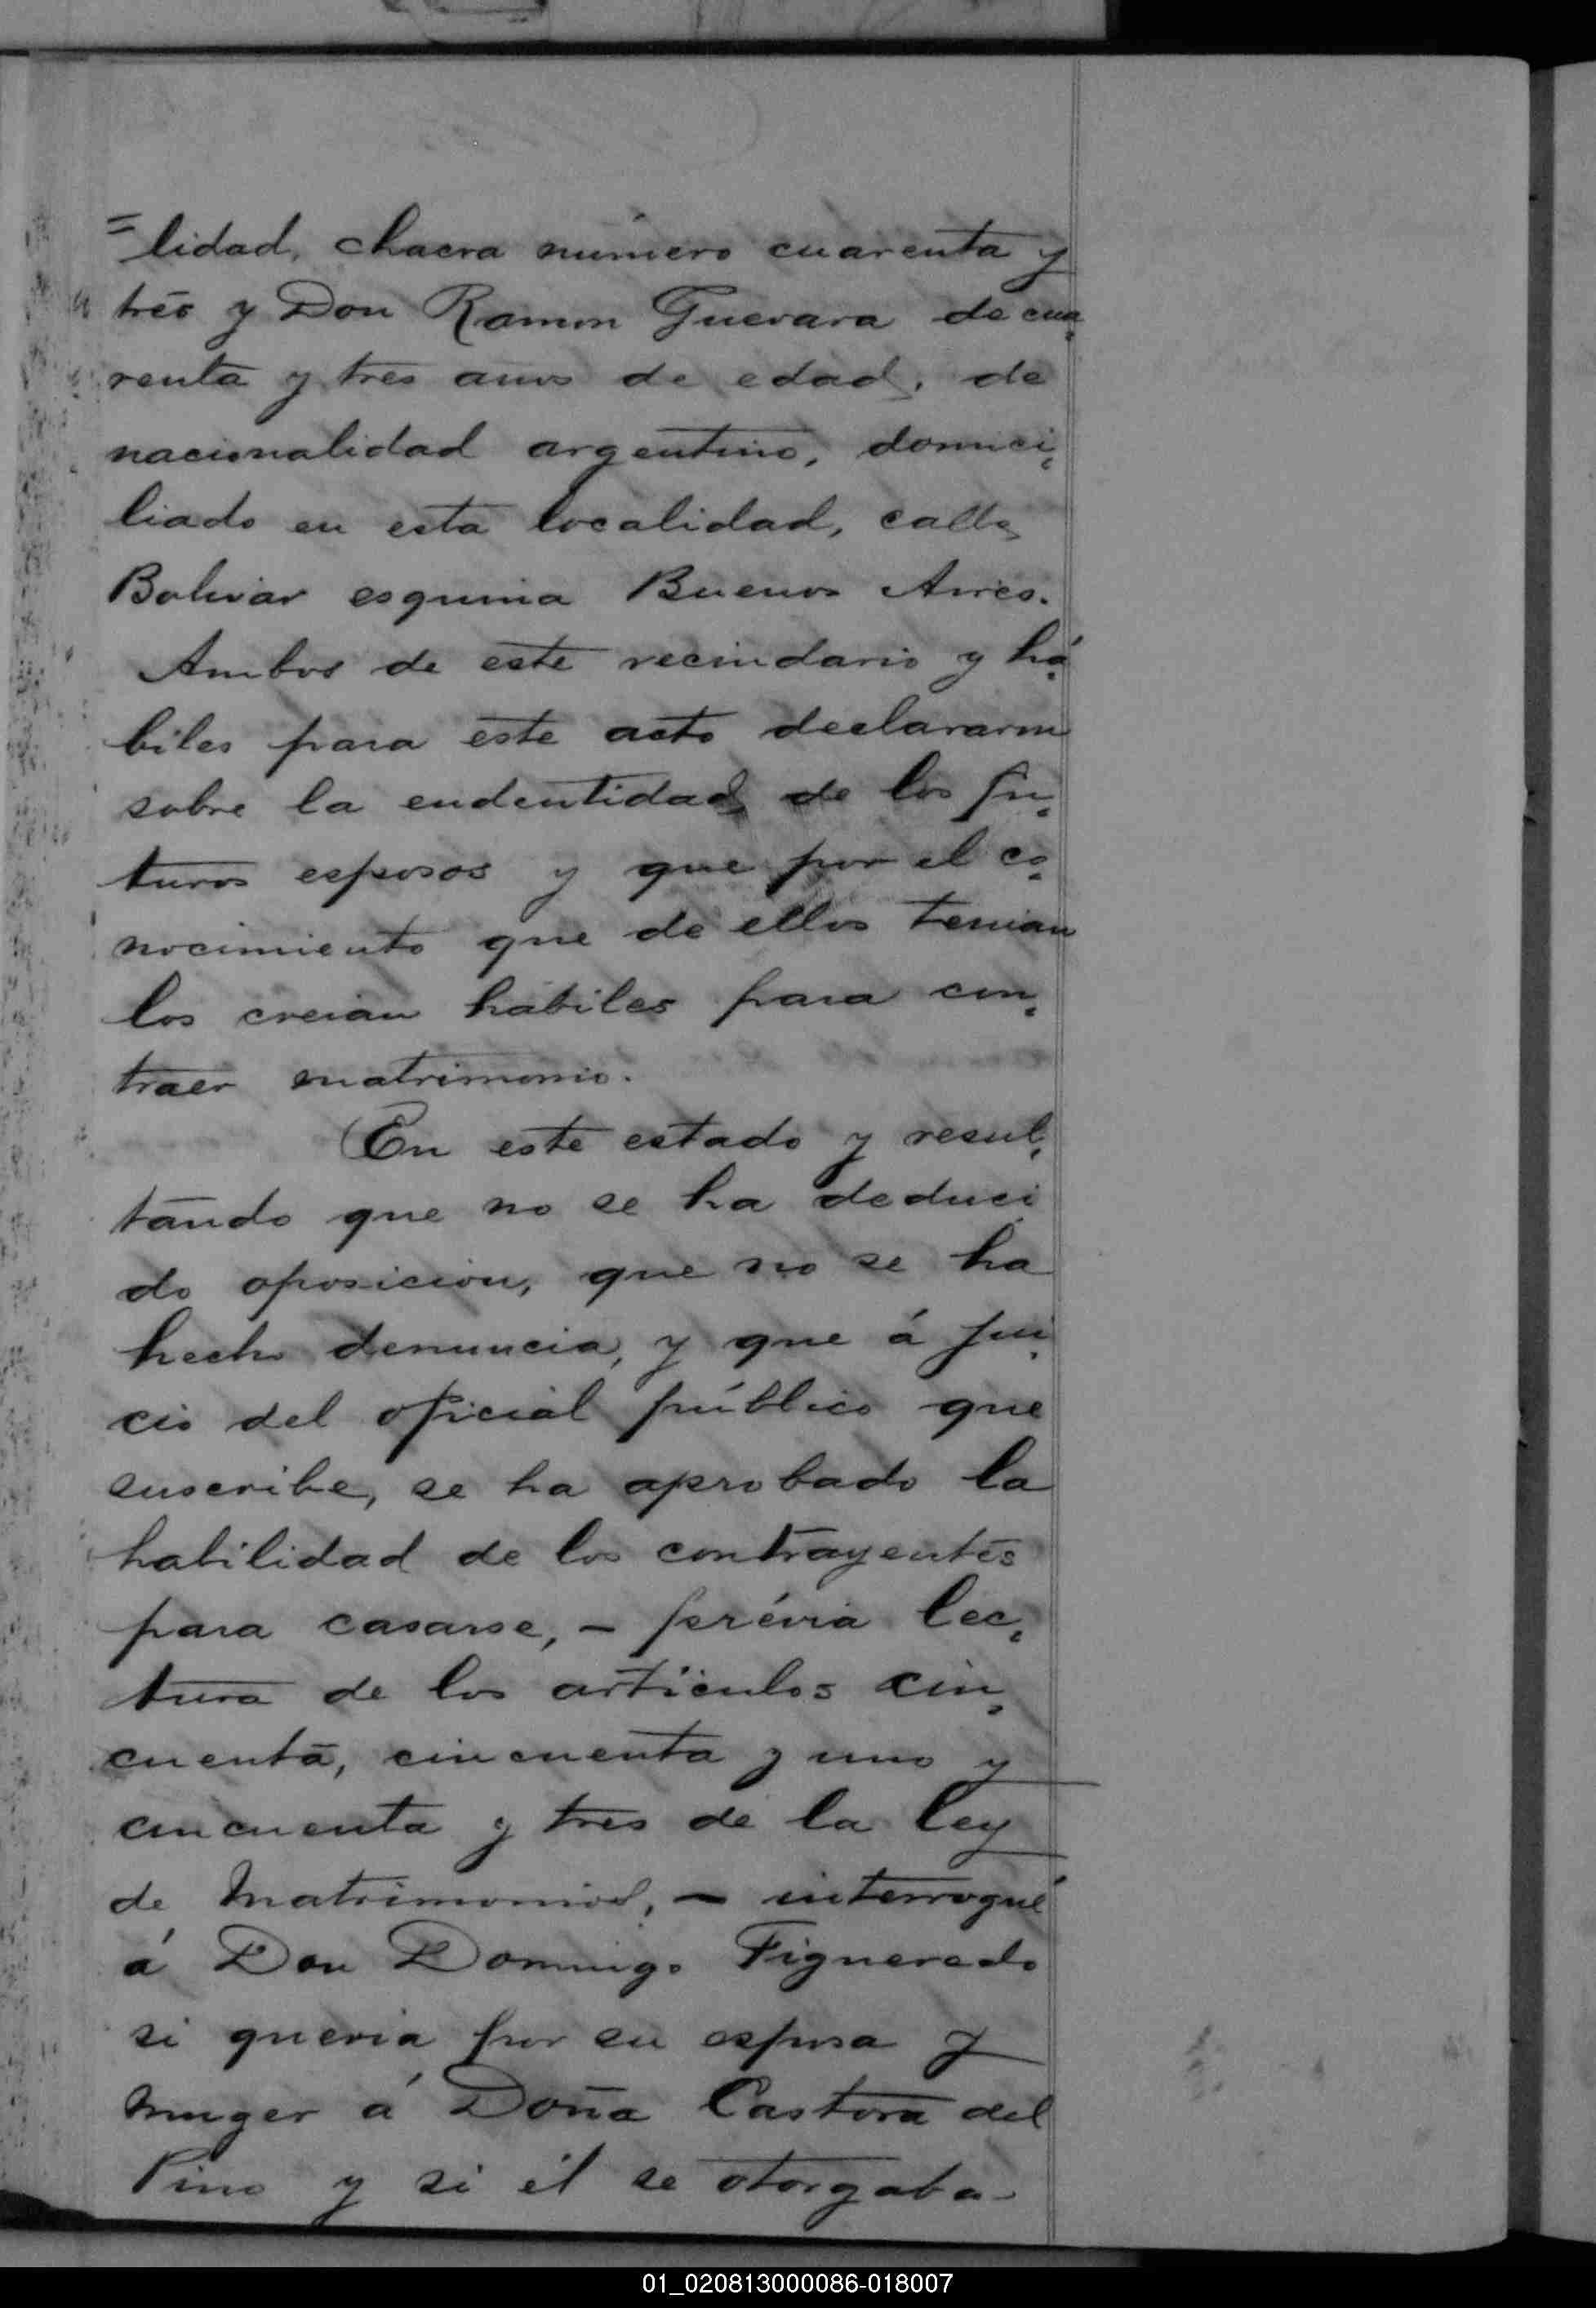 =lidad, chacra número cuarenta y
tres y Don Ramon Guevara de cua
renta y tres años de edad, de
nacionalidad argentino, domici
liado en esta localidad, calle
Bolivar esquina Buenos Aires.
Ambos de este vecindario y há
biles para este acto declararon
sobre la endentidad de los fu
turos esposos y que por el co
nocimiento que de ellos tenian
los creian habiles para con
traer matrimonio.
En este estado y resul
tando que no se ha deduci
do oposicion, que no se ha
hecho denuncia, y que á jui
cio del oficial público que
suscribe, se ha aprobado la
habilidad de los contrayentes
para casarse, - prévia lec
tura de los artículos cin
cuenta, cincuenta y uno y
cincuenta y tres de la ley
de Matrimonios, - interrogué
á Don Domingo Figueredo
si queria por su esposa y
muger á Doña Castora del
Pino y si él se otorgaba-
01_020813000086-018007